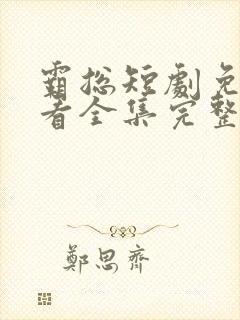 霸总短劇免
看全集完整
鄭思齊